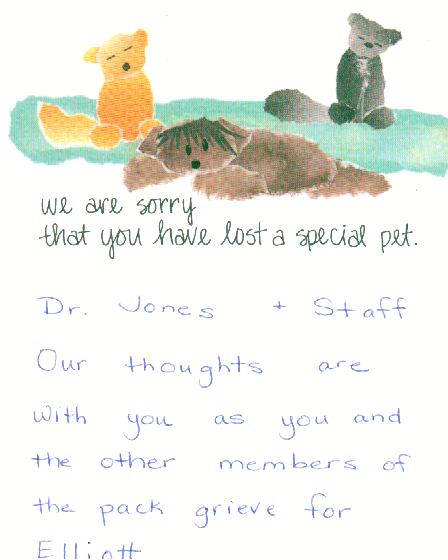 we are sorry
that you have lost a special pet.
Dr. Jones + Staff
Our thoughts are
with you as you and
the other members of
the pack grieve for
Elliott